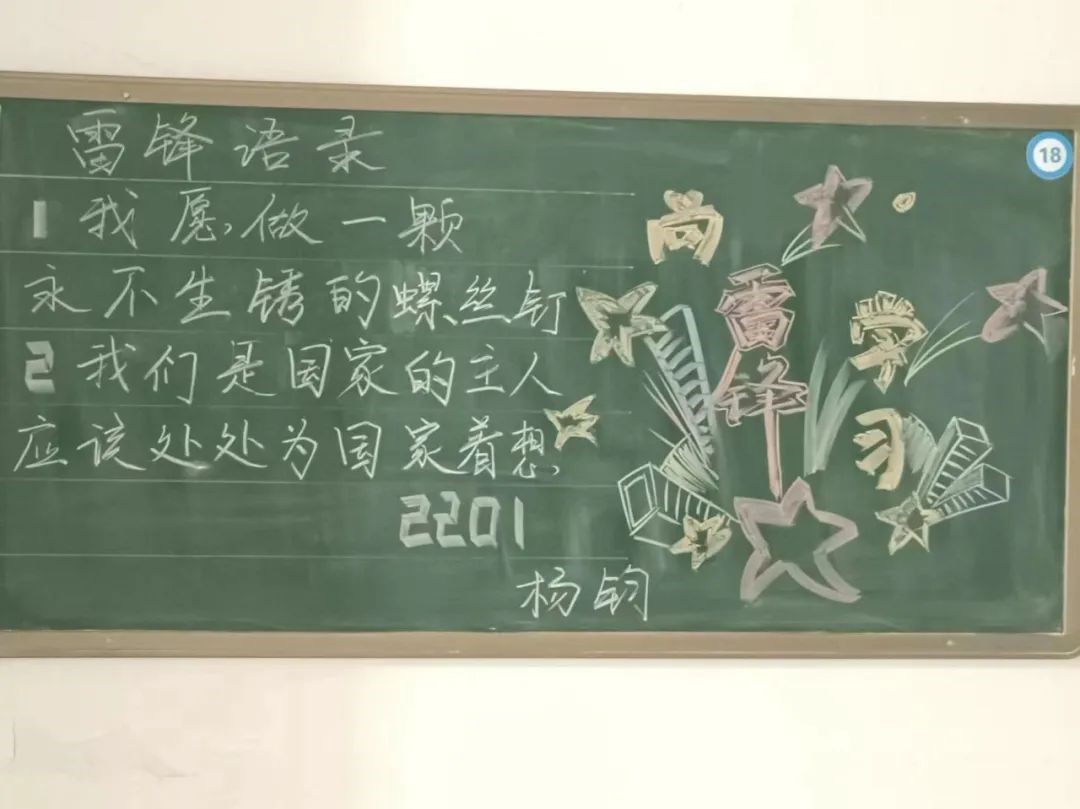 雷锋语录
1 我愿做一颗
永不生锈的螺丝钉
2 我们是国家的主人
应该处处为国家着想
2201
杨钧
向
雷锋
学习
18